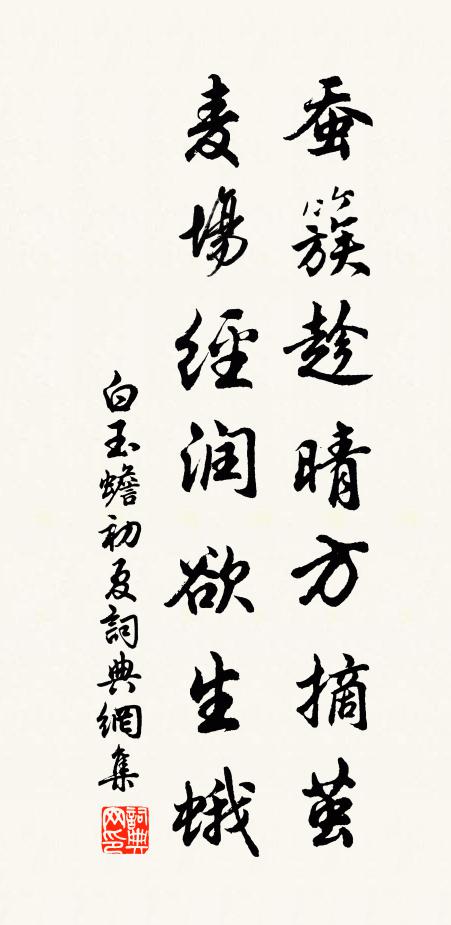 蚕簇趁晴方摘茧
麦場經润欲生蛾
白玉蟾初夏詞典網集
詞典网印